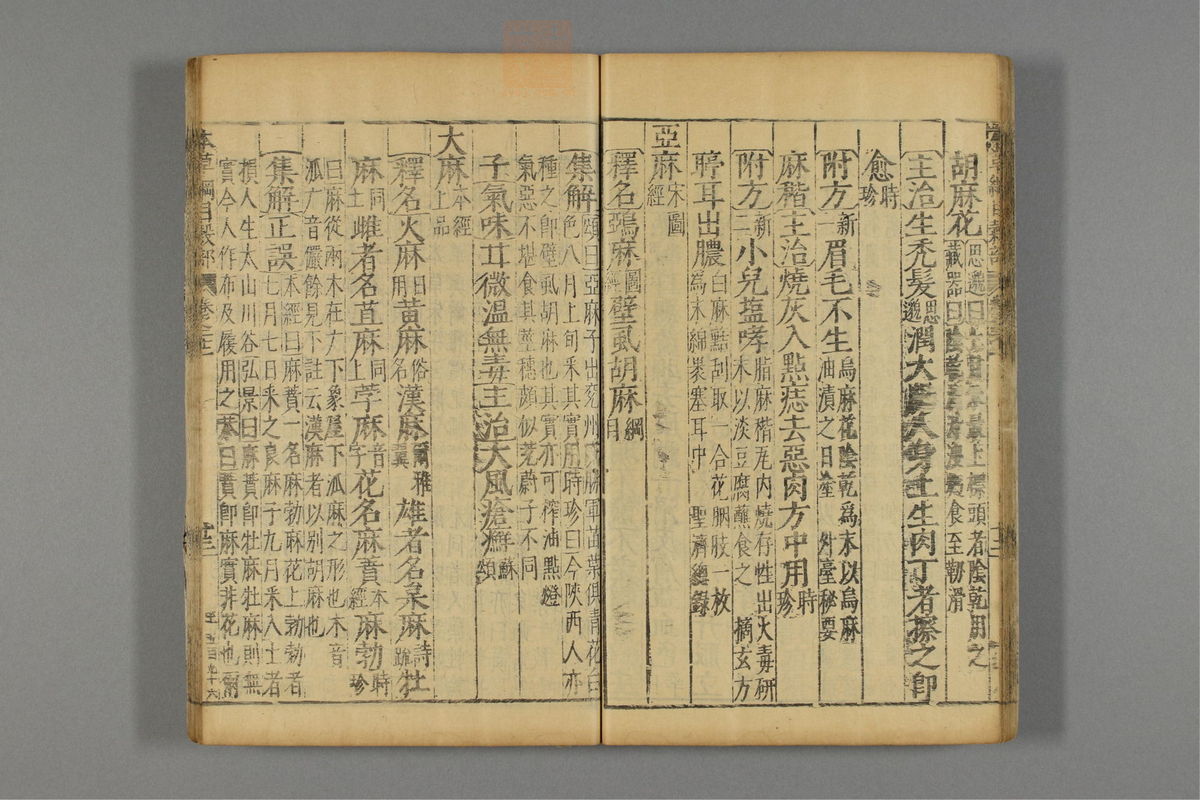 胡麻花思邈曰七月采最上標頭者陰乾用之藏器曰陰乾漬汁溲麪食至韌滑
主治生禿髮思邈潤大腸人身上生肉丁者擦之即
愈時珍
附方新一眉毛不生烏麻花陰乾爲末以烏麻油漬之日塗 外臺秘要
麻稭主治燒灰入點痣去惡肉方中用時珍
附方新二小兒塩哮脂麻稭瓦內燒存性出火毒研末以淡豆腐蘸食之 摘玄方
聤耳出膿白麻稭刮取一合花胭脂一枚爲末綿裹塞耳中 聖濟總錄
亞麻宋圖經
釋名鵶麻圖經壁虱胡麻綱目
集解頌曰亞麻子出兗州威勝軍苗葉俱青花白色八月上旬采其實用時珍曰今陝西人亦
種之即壁虱胡麻也其實亦可榨油點燈氣惡不堪食其莖穗頗似茺蔚子不同
子氣味甘微溫無毒主治大風瘡癬蘇頌
大麻本經上品
釋名火麻日用黃麻俗名漢麻爾雅翼雄者名枲麻詩疏牡
麻同上雌者名苴麻同上荸麻音字花名麻蕡本經麻勃時珍
曰麻從兩木在广下象屋下派麻之形也木音派广音儼餘見下註云漢麻者以别胡麻也
集解正誤本經曰麻蕡一名麻勃麻花上勃勃者七月七日采之良麻子九月采入土者
損人生太山川谷弘景曰麻蕡即牡麻牡麻則無實今人作布及履用之恭曰蕡即麻實非花也爾
本草綱目穀部 卷之二十二